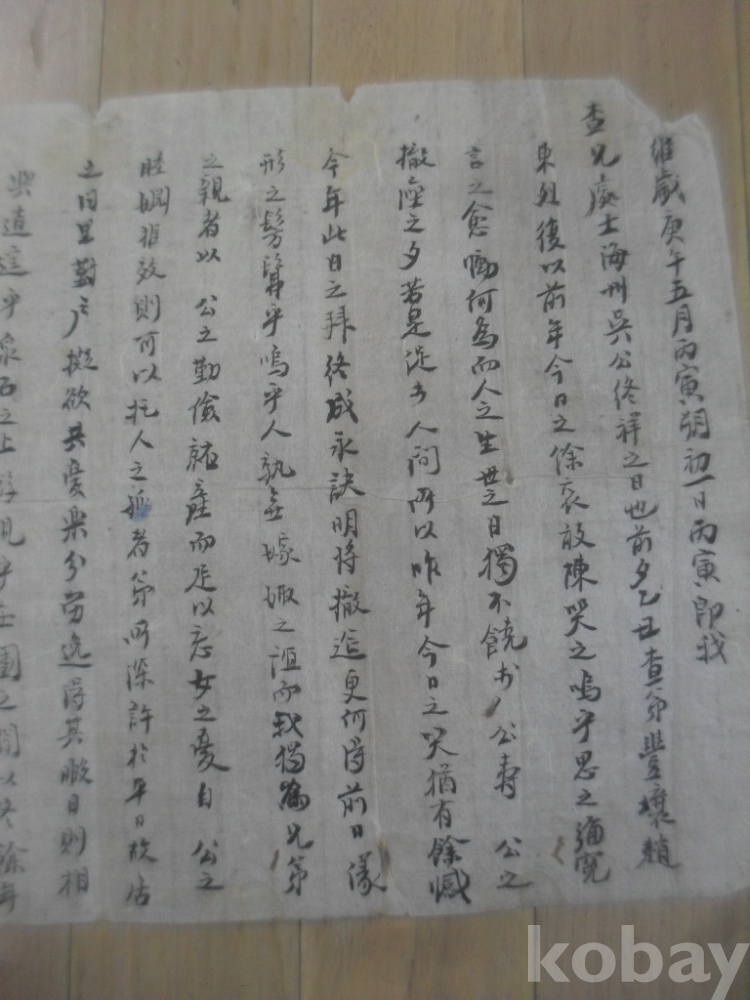 維歲庚午五月丙寅朔初一日丙寅即我
查兄處士海州吳公終祥之日也前夕乙丑查弟豊壤趙
東烈復以前年今日之餘哀敢陳哭之嗚乎思之彌寃
言之愈慟何為而人之生世之日獨不饒於公壽 公之
撤座之夕若是促於人間所以昨年今日之哭猶有餘憾
今年此日之拜終成永訣明將撤筵更何得前日儀
形之髣髴乎嗚乎人孰無嫁娵之誼而我獨為兄弟
之親者以 公之勤儉能產而足以忘女之憂自 公之
睦婣推效則可以托人之孤者弟所深許於平日故居
之同里勤 擬欲共憂樂分勞逸得其暇日則相
與逍遙乎泉石之上 乎 園之間以終餘年
kobay